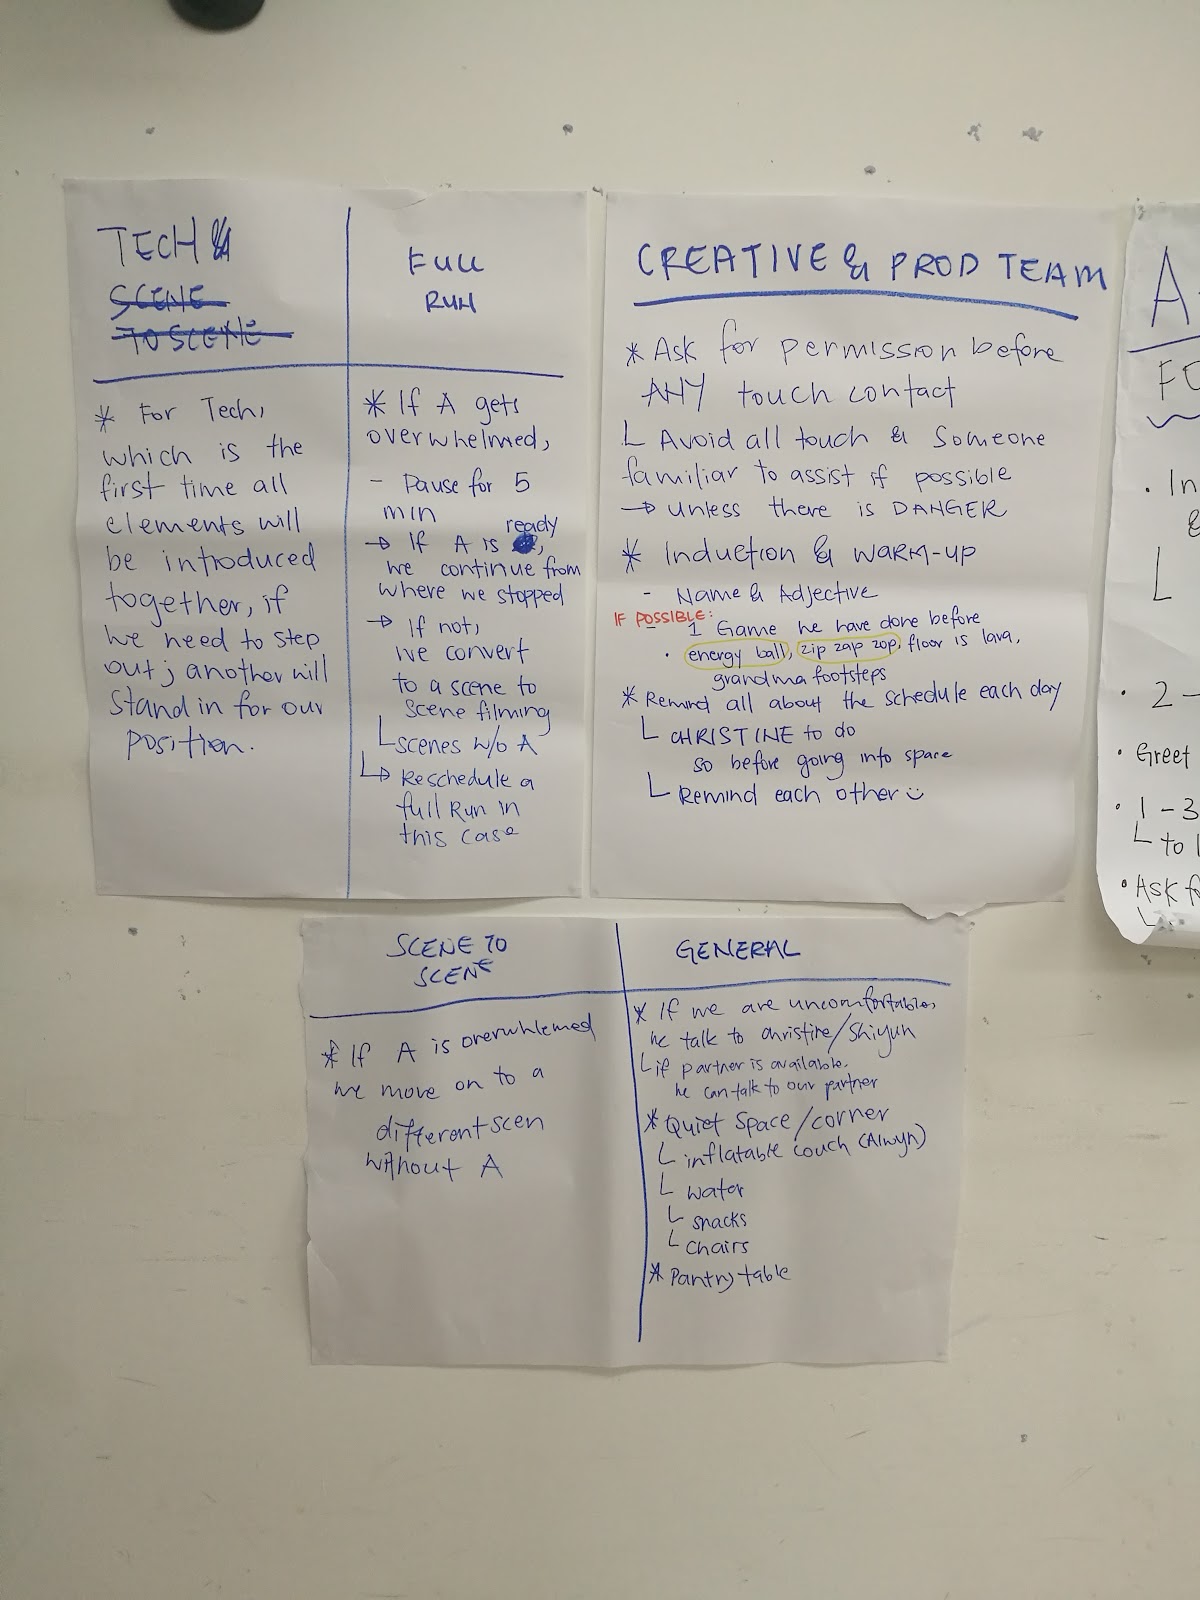 TECH &
SCENE
TO SCENE
* For Tech,
which is the
first time all
elements will
be introduced
together, if
we need to step
out; another will
stand in for our
position.
FULL
RUN
* If A gets
overwhelmed,
- Pause for 5
min
ready
→ If A is ,
we continue from
where we stopped
→ If not,
we convert
to a scene to
scene filming
└ scenes w/o A
└→ Reschedule a
full Run in
this case
CREATIVE & PROD TEAM
* Ask for permission before
ANY touch contact
└ Avoid all touch & someone
familiar to assist if possible
→ unless there is DANGER
* Induction & WARM-UP
- Name & Adjective
IF POSSIBLE:
- 1 Game we have done before
· energy ball, zip zap zop, floor is lava,
grandma footsteps
* Remind all about the schedule each day
└ CHRISTINE to do
so before going into space
└ Remind each other
SCENE TO
SCENE
* If A is overwhlemed
we move on to a
different scen
without A
GENERAL
* If we are uncomfortable,
we talk to christine/Shiyun
└ if partner is available.
we can talk to our partner
* Quiet Space/corner
└ inflatable couch (Alwyn)
└ water
└ snacks
└ chairs
* Pantry table
A
FO
· In
&
└
· 2 -
· Greet
· 1 - 3
└ to
· Ask f